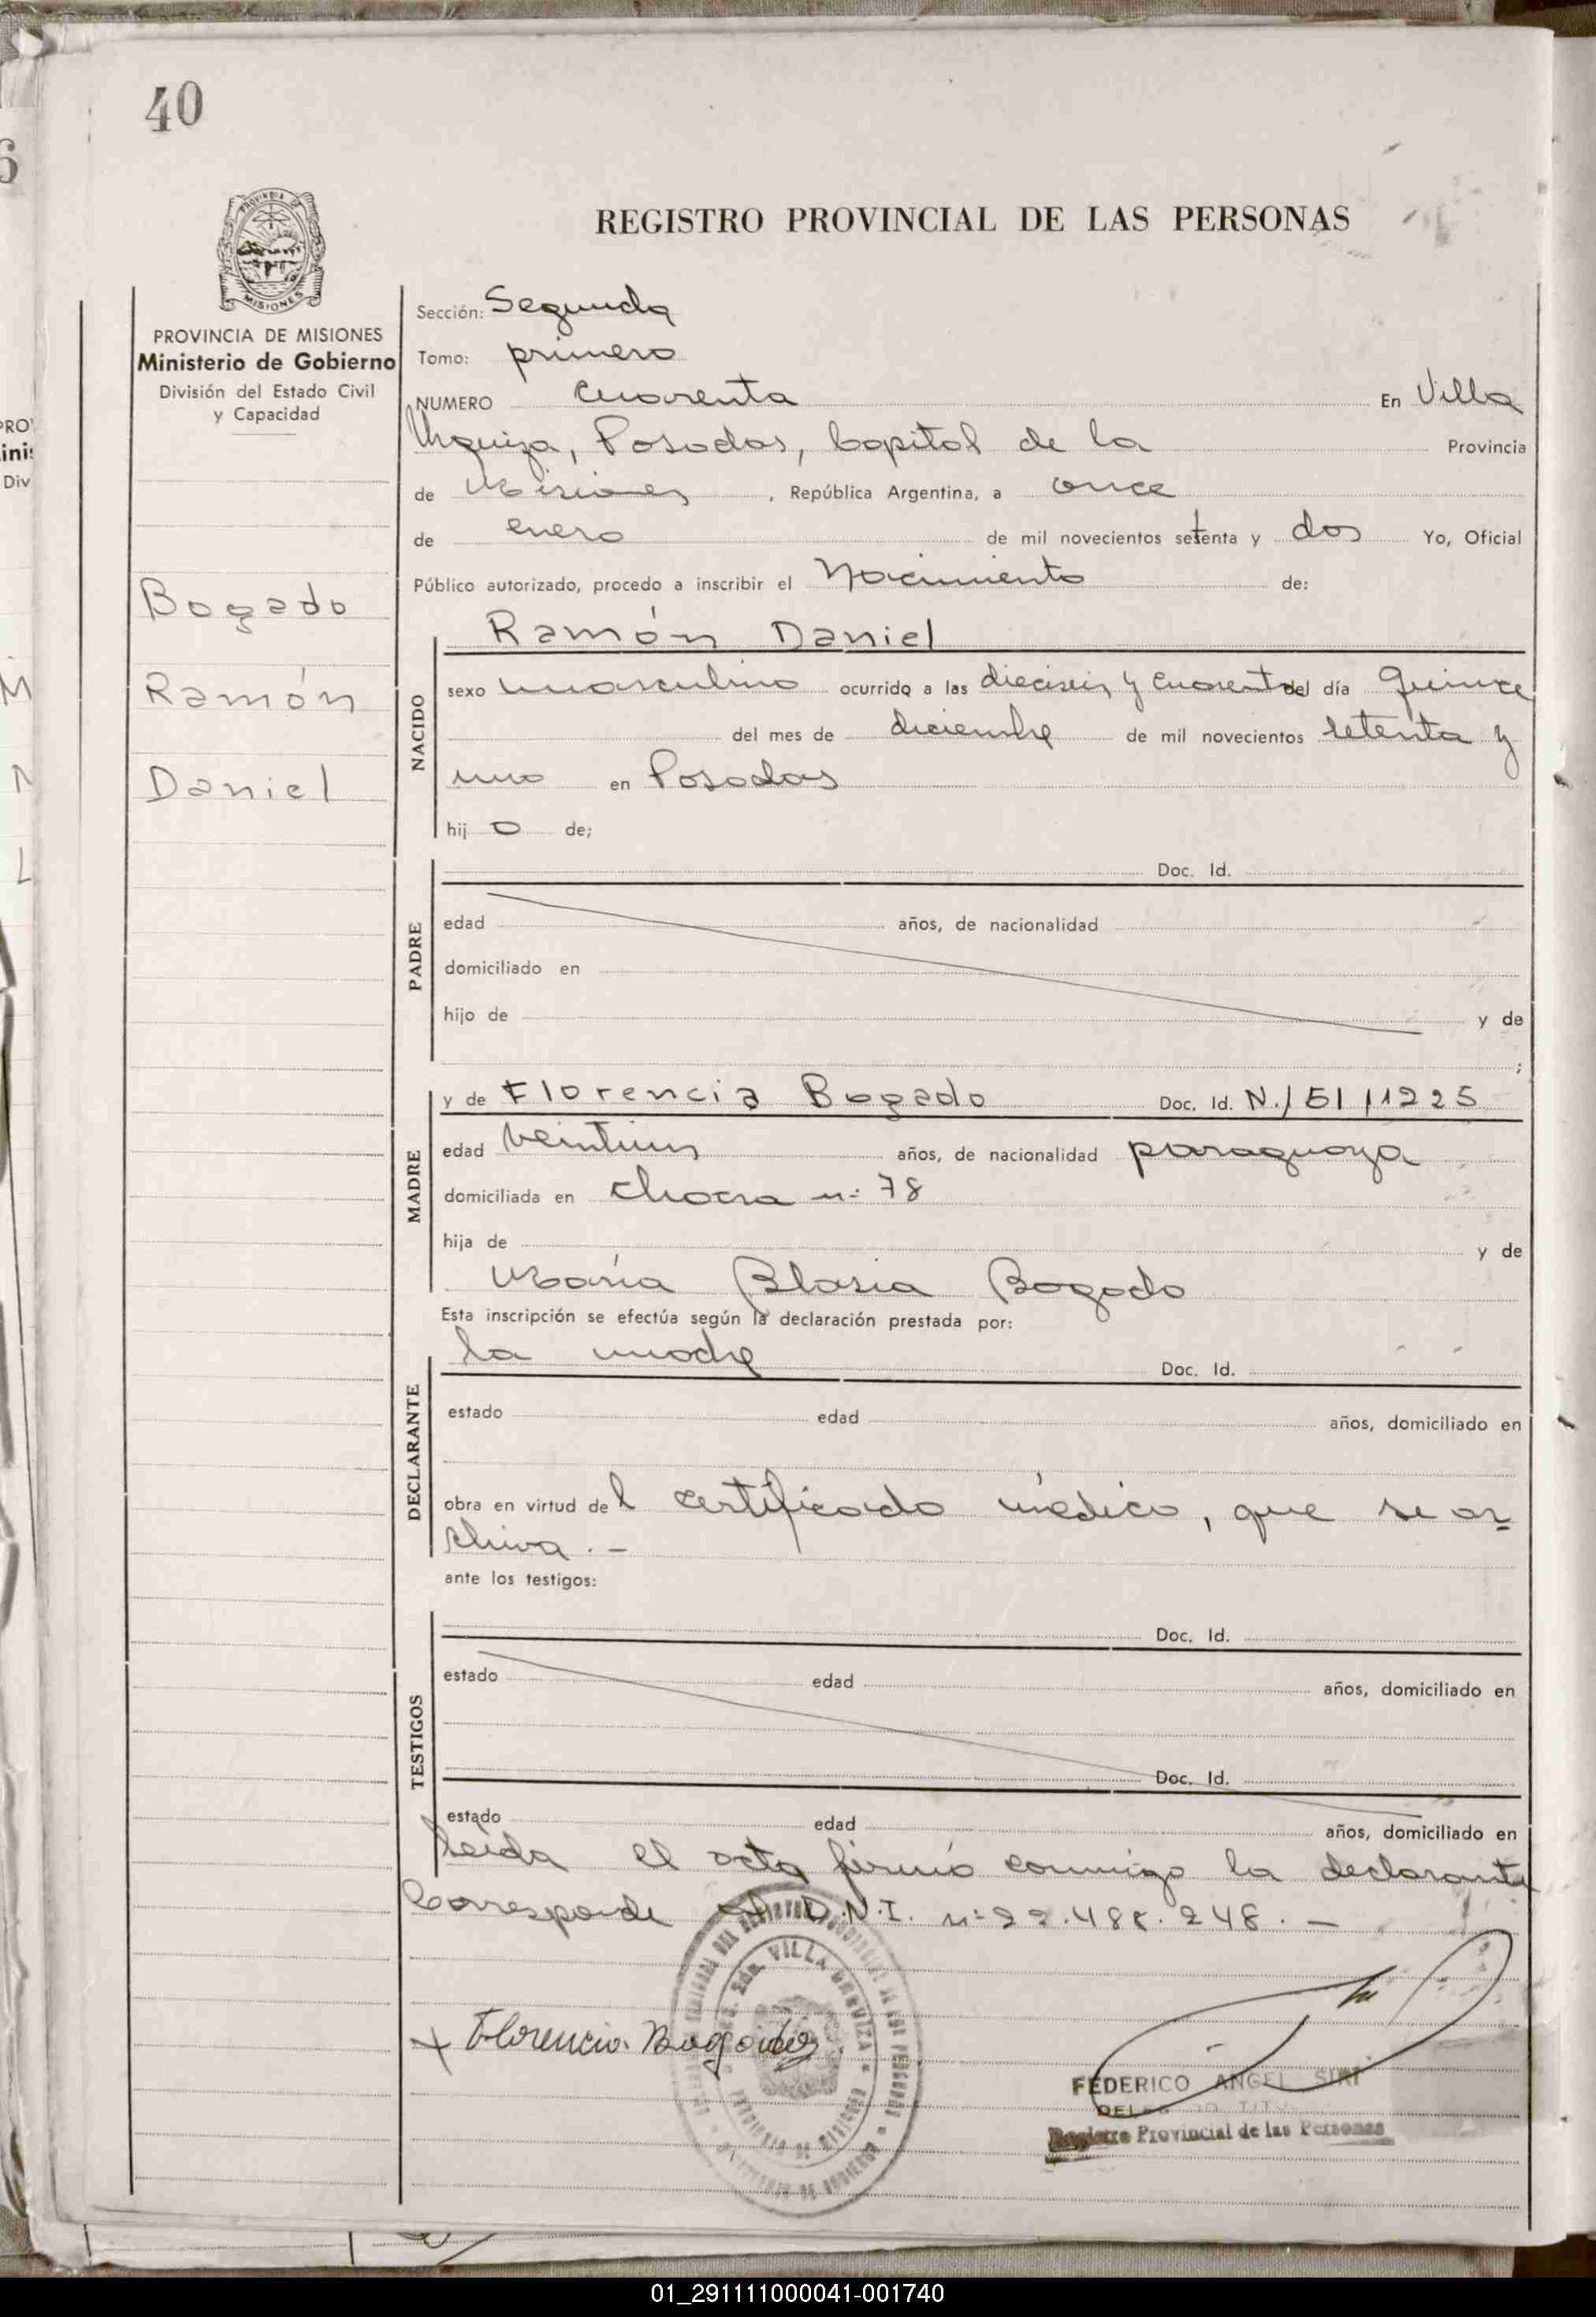 40
REGISTRO PROVINCIAL DE LAS PERSONAS
PROVINCIA DE MISIONES
Ministerio de Gobierno
División del Estado Civil
y Capacidad
Bogado
Ramón
Daniel
Sección: Segunda
Tomo: primero
NUMERO cuarenta En Villa
Urquiza, Posadas, Capital de la Provincia
de Misiones, República Argentina, a once
de enero de mil novecientos setenta y dos Yo, Oficial
Público autorizado, procedo a inscribir el Nacimiento de:
Ramón Daniel
NACIDO
sexo masculino ocurrido a las dieciseis y cuarenta del día quince
del mes de diciembre de mil novecientos setenta y
uno en Posadas
hij o de;
PADRE
Doc. Id.
edad años, de nacionalidad
domiciliado en
hijo de y de
;
MADRE
y de Florencia Bogado Doc. Id. N./51/1225
edad veintiun años, de nacionalidad paraguaya
domiciliada en chacra n: 78
hija de y de
María Blasia Bogado
Esta inscripción se efectúa según la declaración prestada por:
DECLARANTE
la madre Doc. Id.
estado edad años, domiciliado en
obra en virtud del certificado médico, que se ar=
chiva . -
ante los testigos:
TESTIGOS
Doc. Id.
estado edad años, domiciliado en
Doc. Id.
estado edad años, domiciliado en
Leída el acta firmó conmigo la declarante
Corresponde D.N.I. n: 22.488.248. —
x Florencia Bogado
FEDERICO ANGEL SIRI
Registro Provincial de las Personas
01_291111000041-001740